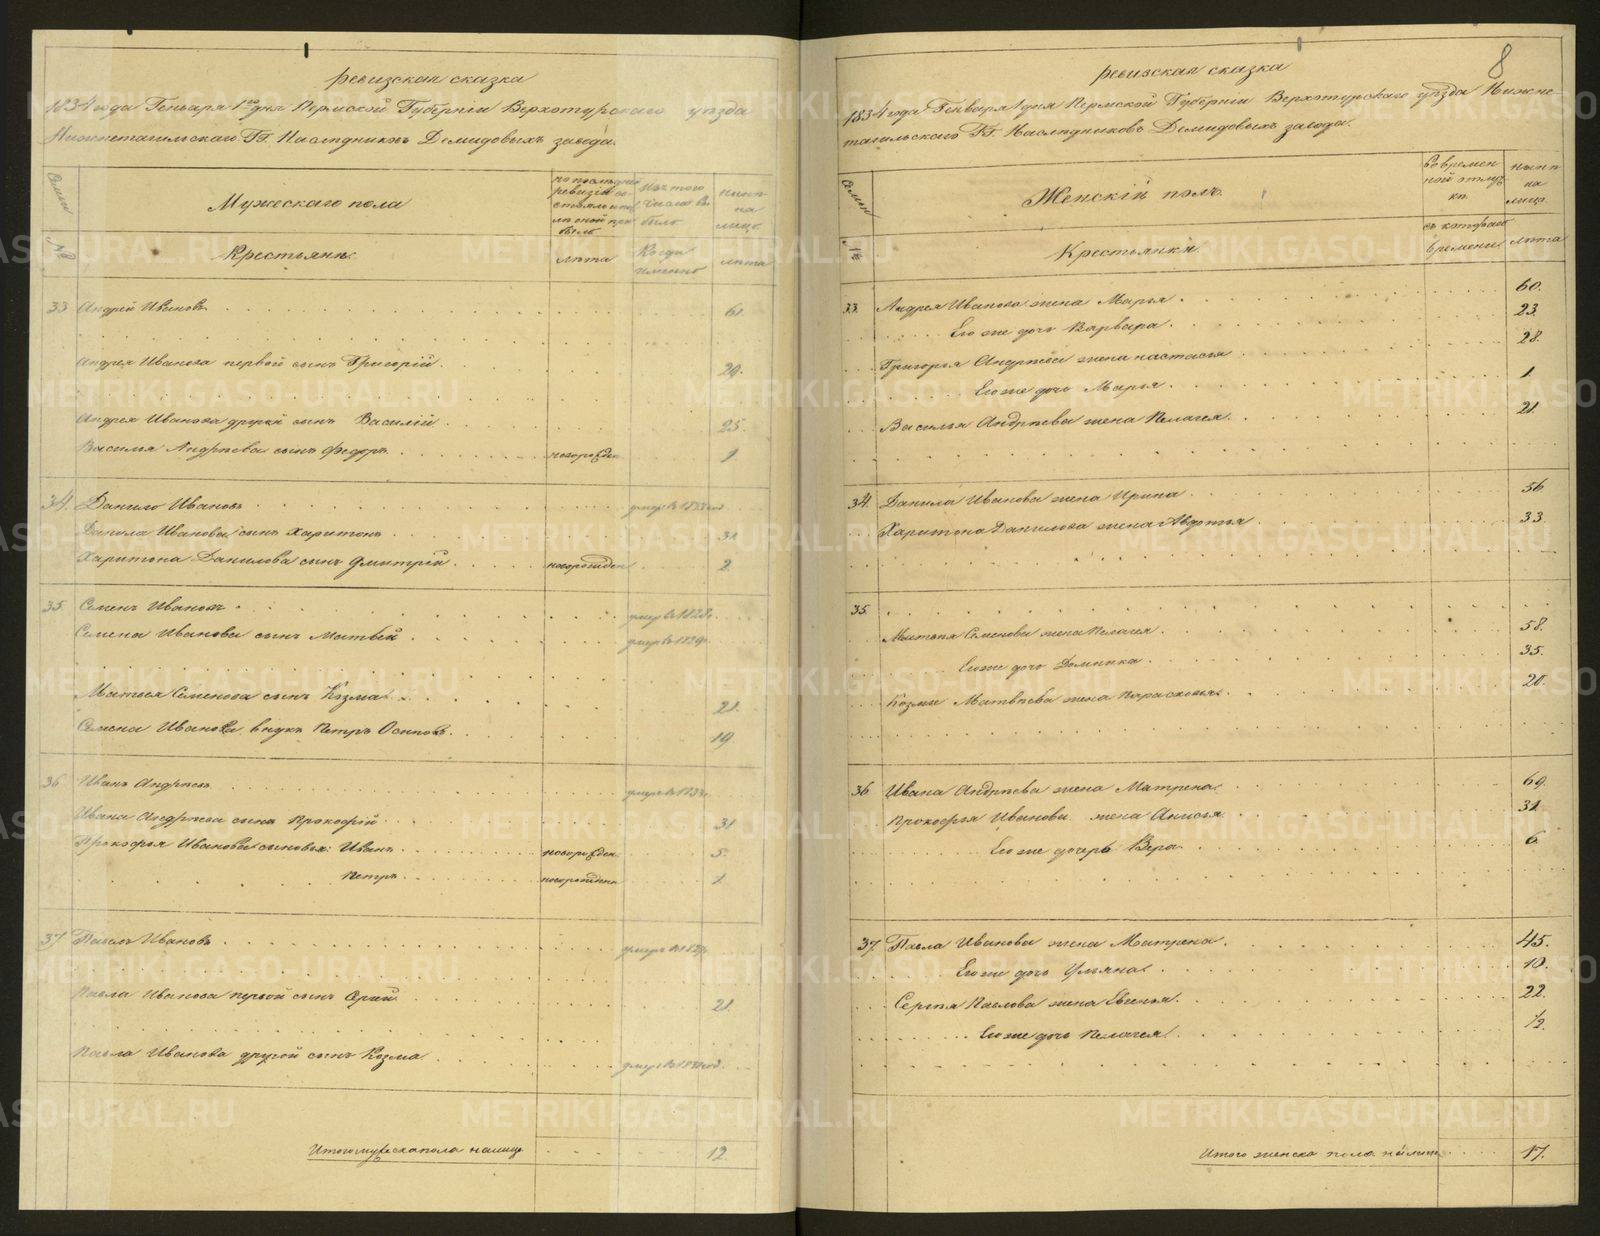 8
ревизская сказка
1834 года Генваря 1го дня Пермской Губерніи Верхотурскаго уѣзда
Нижнетагильскаго Гг. Наслѣдниковъ Демидовыхъ завода.
Семьи
Мужескаго пола
Изъ того числа вы было
нынѣ на лицо
№
Крестьяне
лѣта
Когда именно
лѣта
33 Андрей Ивановъ 61
Андрея Иванова первой сынъ Григорій
Андрея Иванова другой сынъ Василій 25
Василья Андрѣева сынъ Федоръ новорожден 1
34. Данило Ивановъ
Данила Иванова сынъ Харитонъ 31
Харитона Данилова сынъ Дмитрей новорожден 2
35 Семенъ Ивановъ
Семена Иванова сынъ Матвей
Матвея Семенова сынъ Козма 21.
Семена Иванова внукъ Петръ Осиповъ 19
36 Иванъ Андрѣевъ
Ивана Андрѣева сынъ Прокофій 31
Прокофья Иванова сыновья: Иванъ новорожден 5.
Петръ новорожден 1
37 Павелъ Ивановъ
Павла Иванова первой сынъ Сергей 21
Павла Иванова другой сынъ Козма
Итого мужеска пола налицо 12
ревизская сказка
1834 года Генваря 1 дня Пермской Губерніи Верхотурскаго уѣзда Нижне-
тагильскаго Гг. Наслѣдниковъ Демидовыхъ завода.
Семьи
Женскій полъ
Во времен ной отлуч кѣ
нынѣ на лицо
№
Крестьянки
съ котораго времени
лѣта
33. Андрея Иванова жена Марья 60.
Его же дочь Варвара 23.
Григорья Андрѣева жена настасья 28.
Его же дочь Марья 1
Василья Андрѣева жена Пелагея 21.
34. Данила Иванова жена Ирина 56
Харитона Данилова жена Авдотья 33
35.
Матвѣя Семенова жена Пелагея 58.
Его же дочь Домника 35.
Козмы Матвѣева жена Парасковья 20.
36 Ивана Андрѣева жена Матрена 69.
Прокофья Иванова жена Анисья 31
Его же дочерь Вера 6
37. Павла Иванова жена Матрена 45.
Его же дочь Ульяна 10.
Сергѣя Павлова жена Евгенья 22.
Его же дочь Пелагея ½.
Итого женска пола на лицо 17.
METRIKI.GASO-URAL.RU